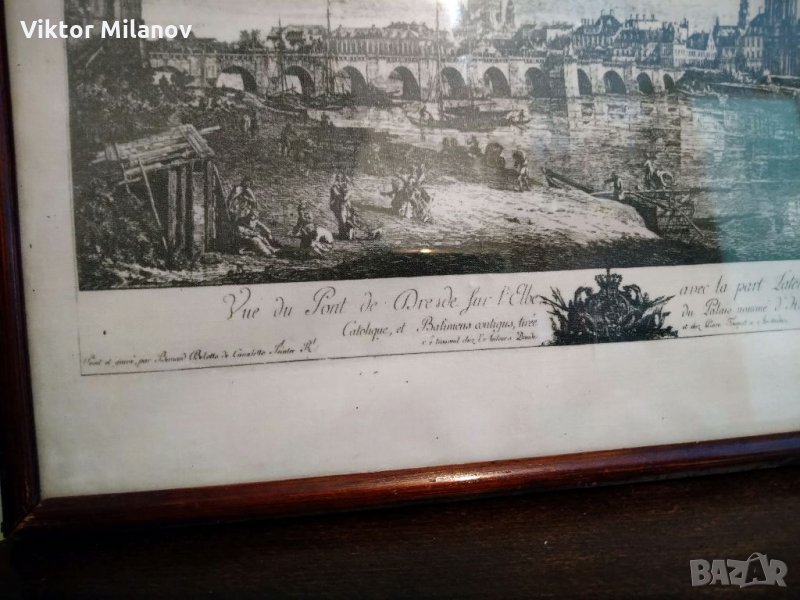 Viktor Milanov
Vue du Pont de Dresde sur l'Elbe avec la part Late
Catolique, et Batimens contigus, tirée du Palais nommé d'H
Peint et gravé, par Bernard Belotto de Canaletto Peintre Rl. se trouvent chez l'Auteur a Dresde et chez Pierre
BAZAR